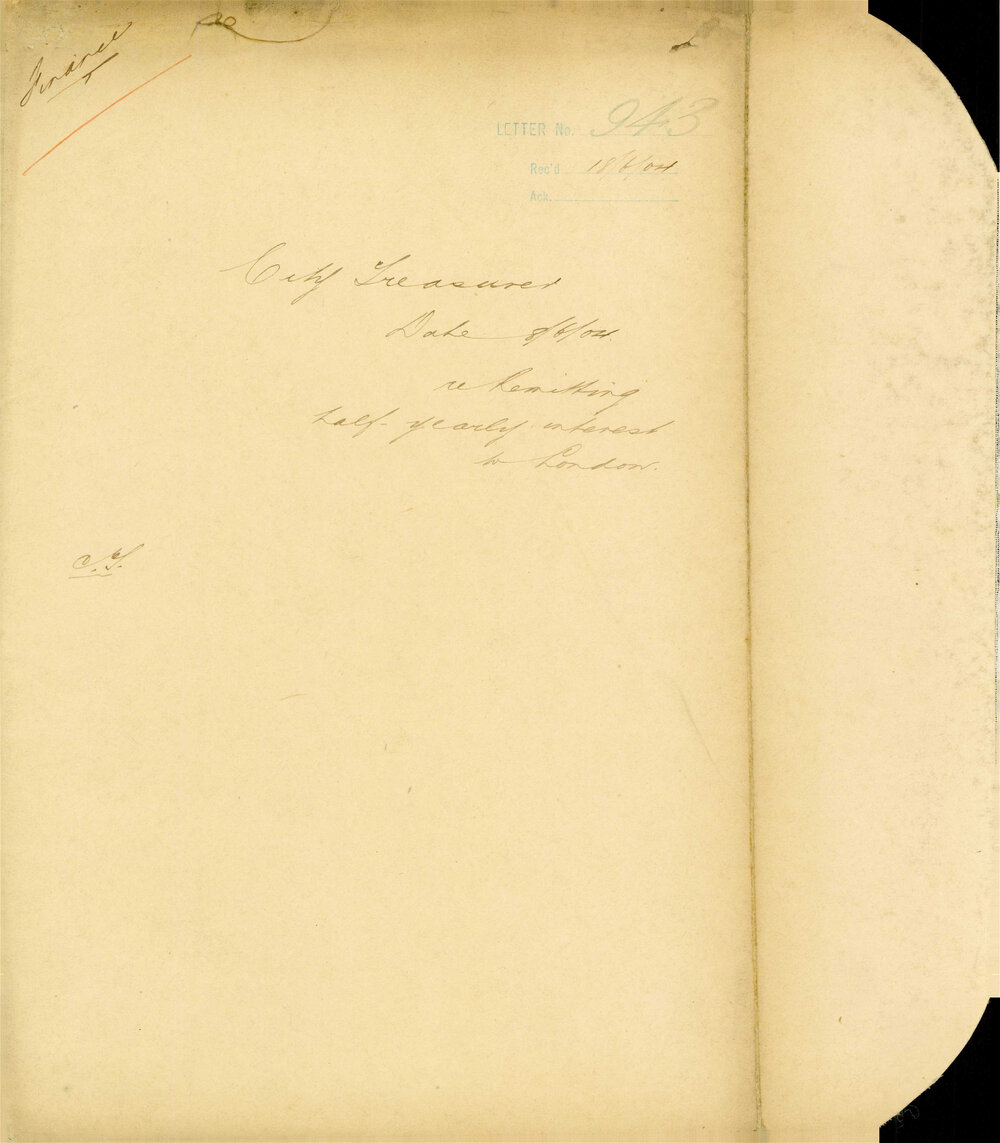 Finance
LETTER No. 943
Rec'd 18/6/04
Ack.
City Treasurer
Date 8/6/04.
re Remitting
half-yearly interest
to London.
C.T.